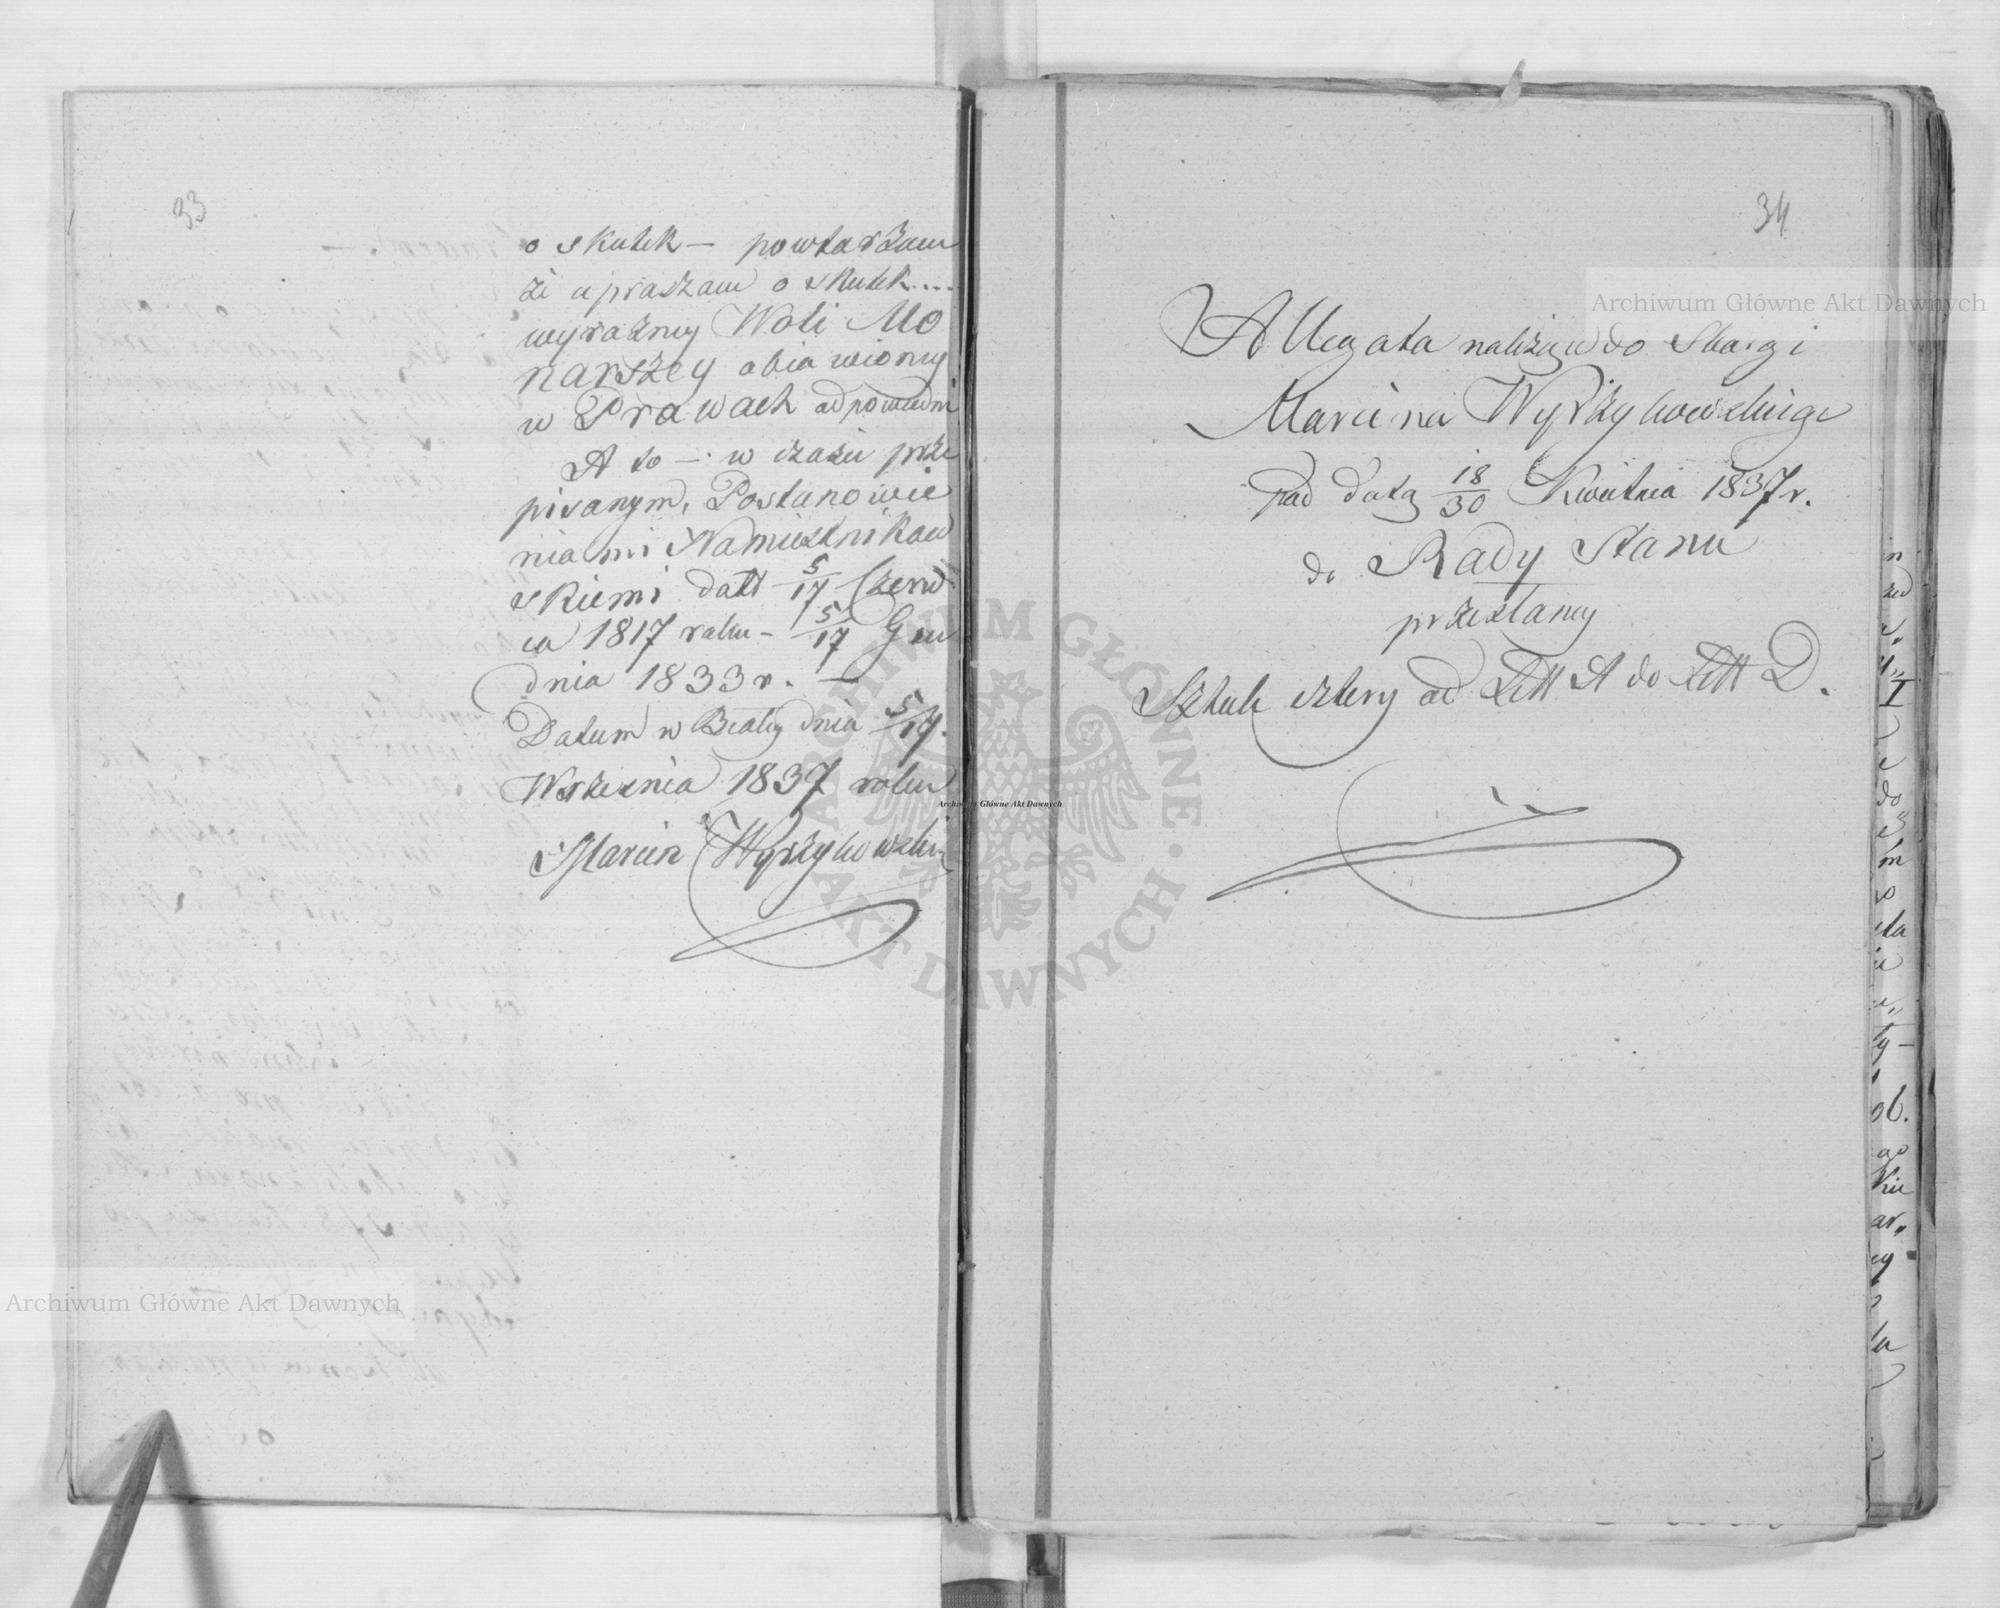 33
o skutek – powtarzam
że upraszam o skutek...
wyraźney Woli Mo
narszey obiawioney
w Prawach odpowiedni
A to – w czasie prze
pisanym, Postanowie
niami Namiestnikow
skiemi datt 5/17 Czerw
ca 1817 roku – 5/17 Gru
dnia 1833 r. –
Datum w Białey dnia 5/17.
Września 1837 roku
Marcin Wyrzykowski
34
Allegata należące do Skargi
Marcina Wyrzykowskiego
pod datą 18/30 Kwietnia 1837 r.
do Rady Stanu
przesłaney
Sztuk cztery od Litt A do Litt D.
Archiwum Główne Akt Dawnych
Archiwum Główne Akt Dawnych
Archiwum Główne Akt Dawnych
ARCHIWUM GŁÓWNE · AKT DAWNYCH ·